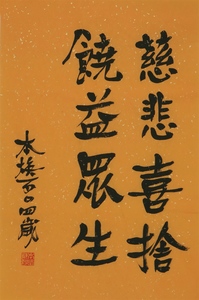 慈悲喜捨
饒益眾生
本煥一百〇四歲